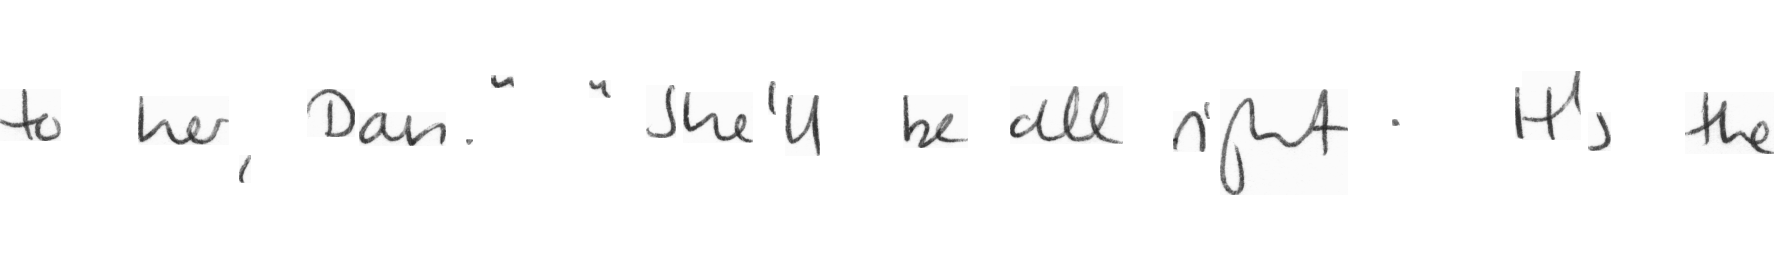 to her, Dan." "She'll be all right. It's the